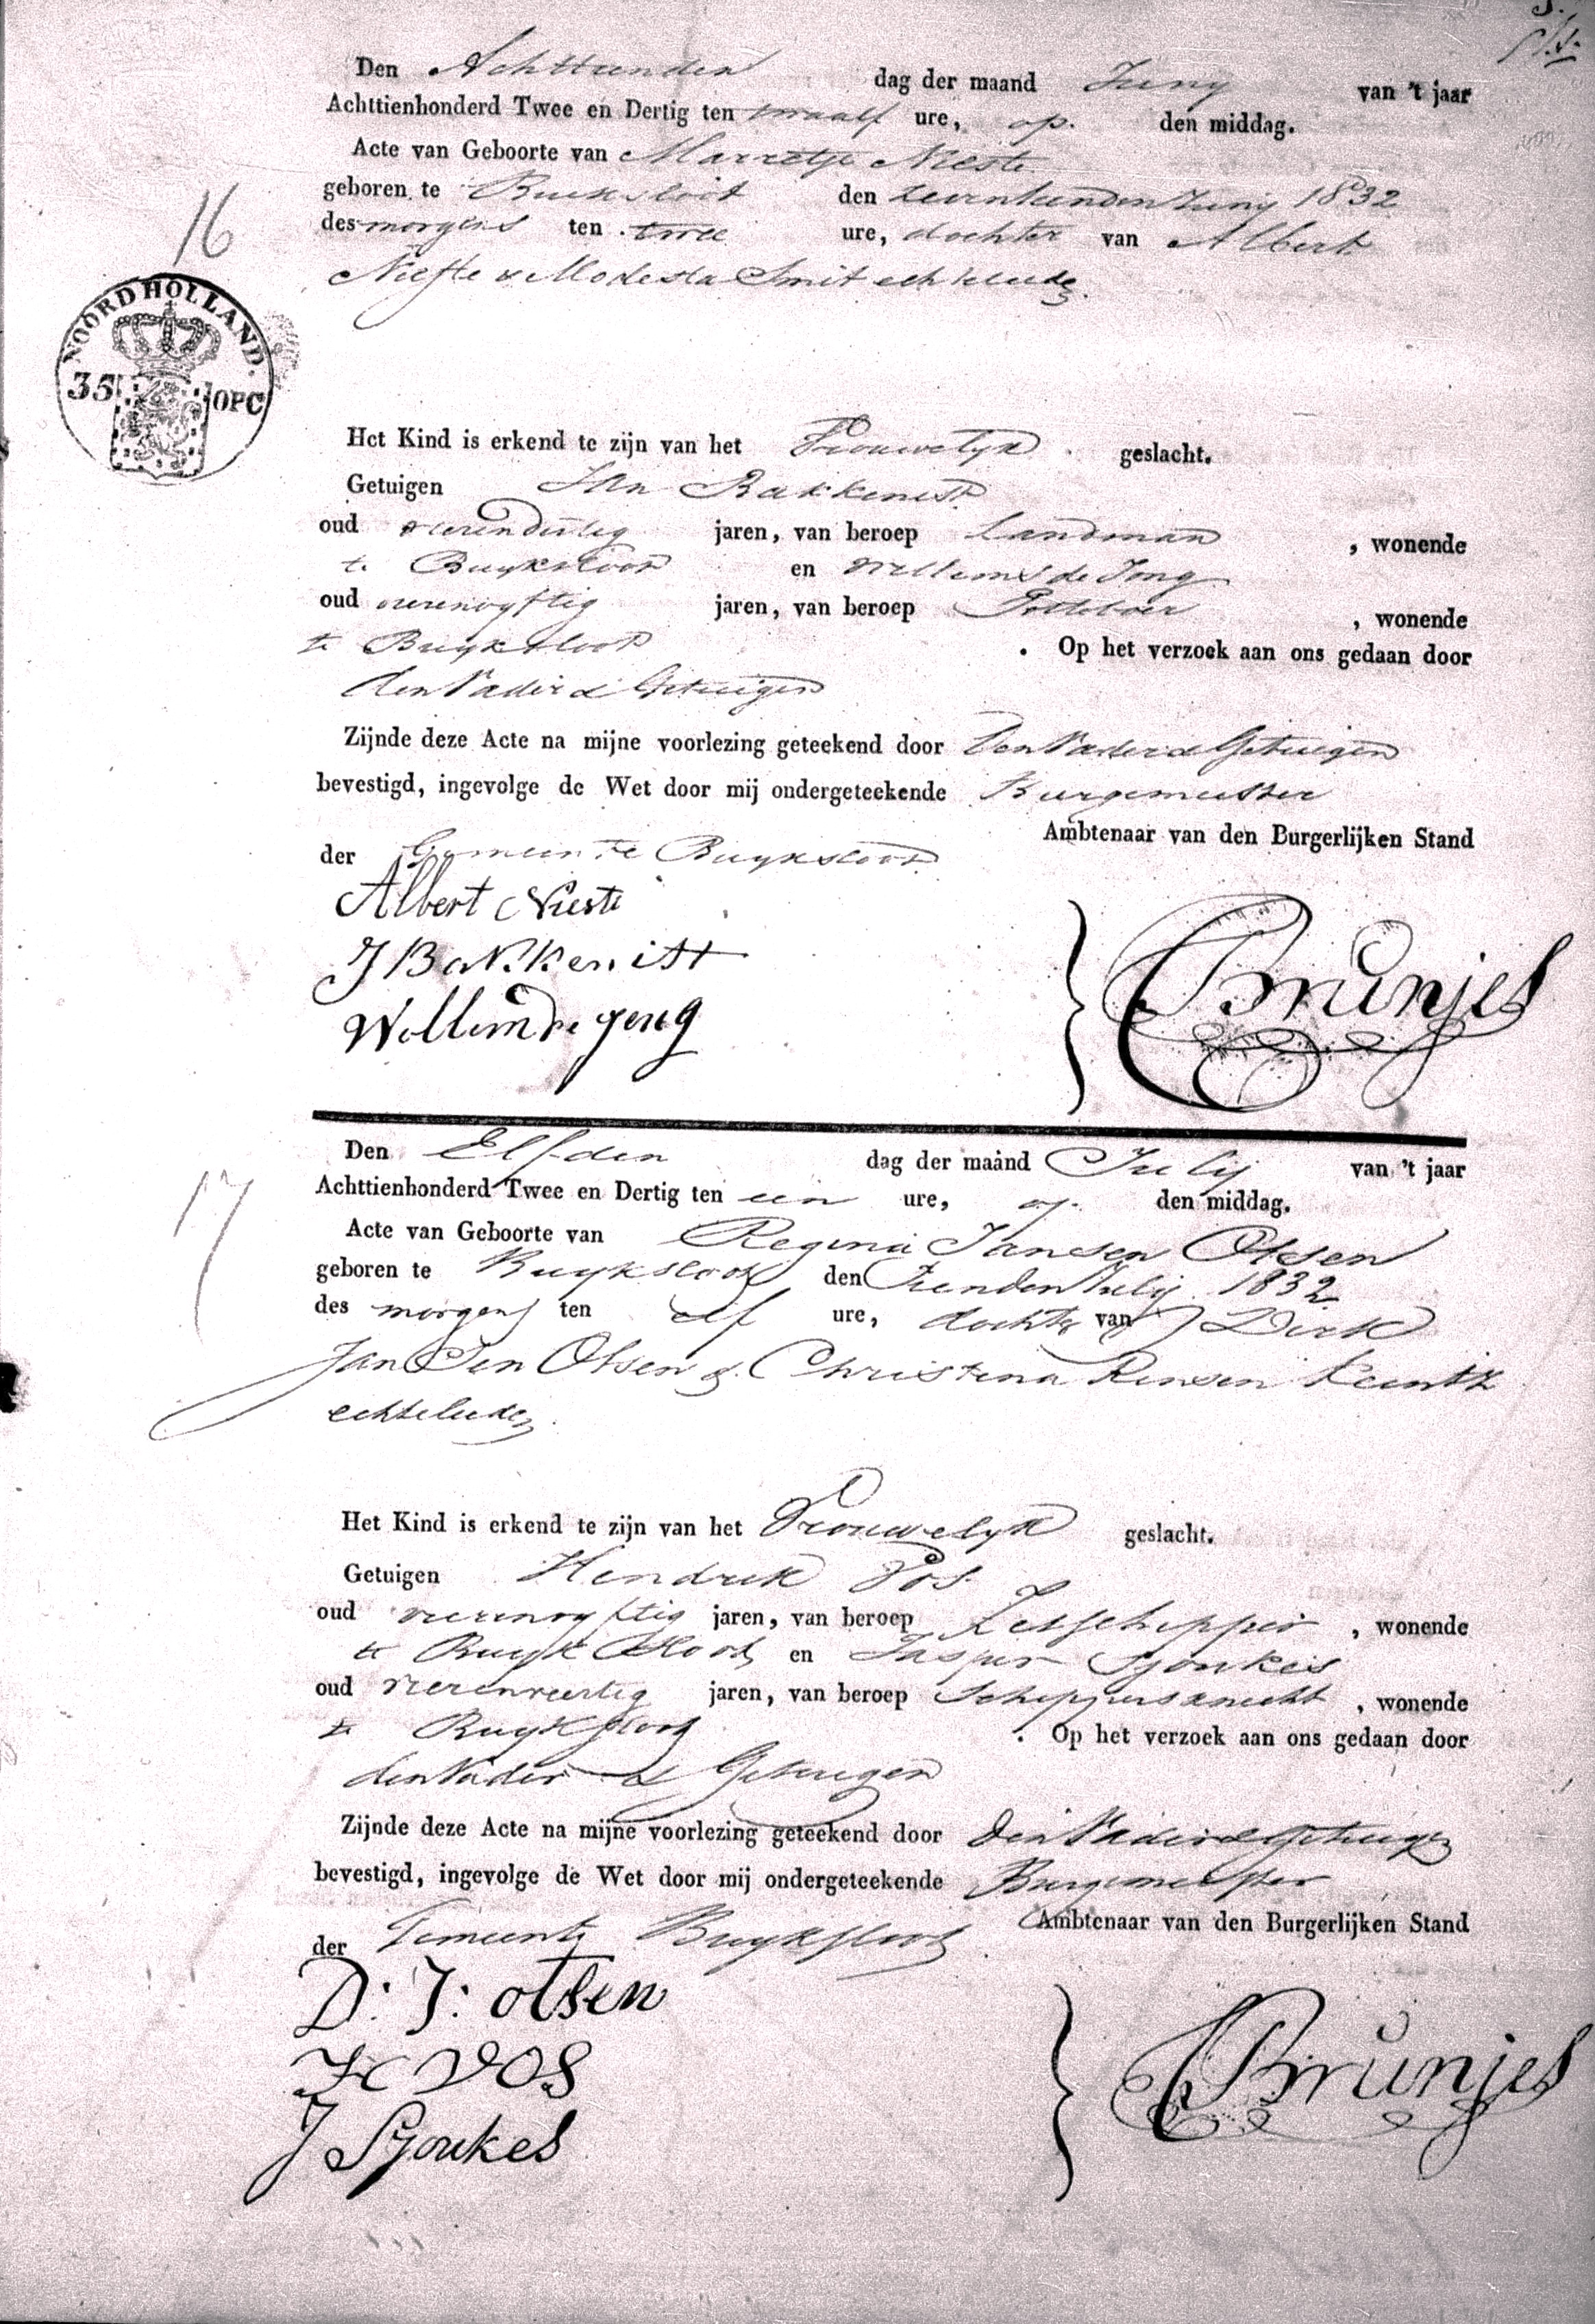 Den Achttienden dag der maand Juny van 't jaar
Achttienhonderd Twee en Dertig ten twaalf ure, op. den middag.
Acte van Geboorte van Marretje Nieste
geboren te Buiksloot den zeventienden Juny 1832
des morgens ten twee ure, dochter van Albert
Niefte & Modesta Smit echtelieden
16
NOORD HOLLAND.
35 OPC
Het Kind is erkend te zijn van het Vrouwelyk geslacht.
Getuigen Jan Bakkenist
oud vierendertig jaren, van beroep Landman, wonende
te Buyksloot en Willem de Jong
oud vierenvyftig jaren, van beroep , wonende
te Buyksloot. Op het verzoek aan ons gedaan door
den Vader & Getuigen
Zijnde deze Acte na mijne voorlezing geteekend door Den Vader & Getuigen
bevestigd, ingevolge de Wet door mij ondergeteekende Burgemeester
Ambtenaar van den Burgerlijken Stand
der Gemeente Buyksloot
Albert Nieste
J Bakkenist
Willem de jong
Brunjes
Den Elfden dag der maand July van 't jaar
Achttienhonderd Twee en Dertig ten een ure, op. den middag.
17
Acte van Geboorte van Regina Jansen Otsen
geboren te Buyksloot den Tienden July 1832
des morgens ten elf ure, dochter van Dirk
Jansen Otsen & Christina Rensen
echtelieden
Het Kind is erkend te zijn van het Vrouwelyk geslacht.
Getuigen Hendrik Vos
oud vierenvyftig jaren, van beroep , wonende
te Buyksloot en Jasper Sjoukes
oud vierenveertig jaren, van beroep Schippersknecht, wonende
te Buyksloot. Op het verzoek aan ons gedaan door
den Vader & Getuigen
Zijnde deze Acte na mijne voorlezing geteekend door den Vader & Getuigen
bevestigd, ingevolge de Wet door mij ondergeteekende Burgemeester
Ambtenaar van den Burgerlijken Stand
der Gemeente Buyksloot
D: J: otsen
H VOS
J Sjoukes
Brunjes